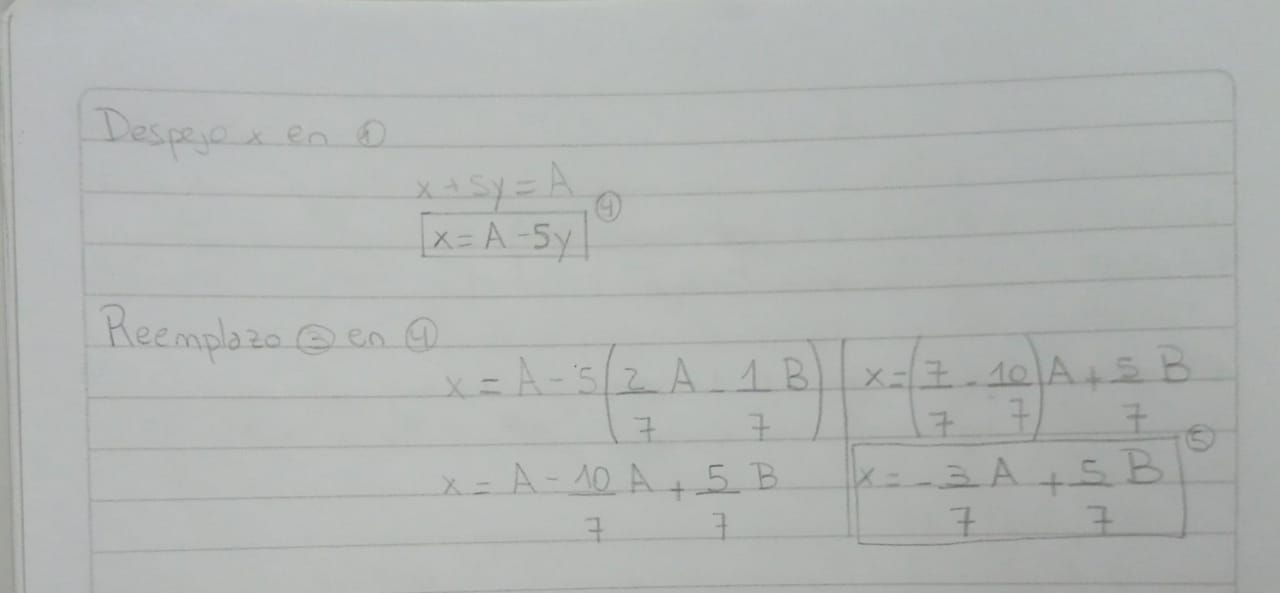 Despejo x en ①
x + 5y = A
x = A - 5y ④
Reemplazo ③ en ④
x = A - 5(2/7 A - 1/7 B)
x = A - 10/7 A + 5/7 B
x = (7/7 - 10/7)A + 5/7 B
x = - 3/7 A + 5/7 B ⑤